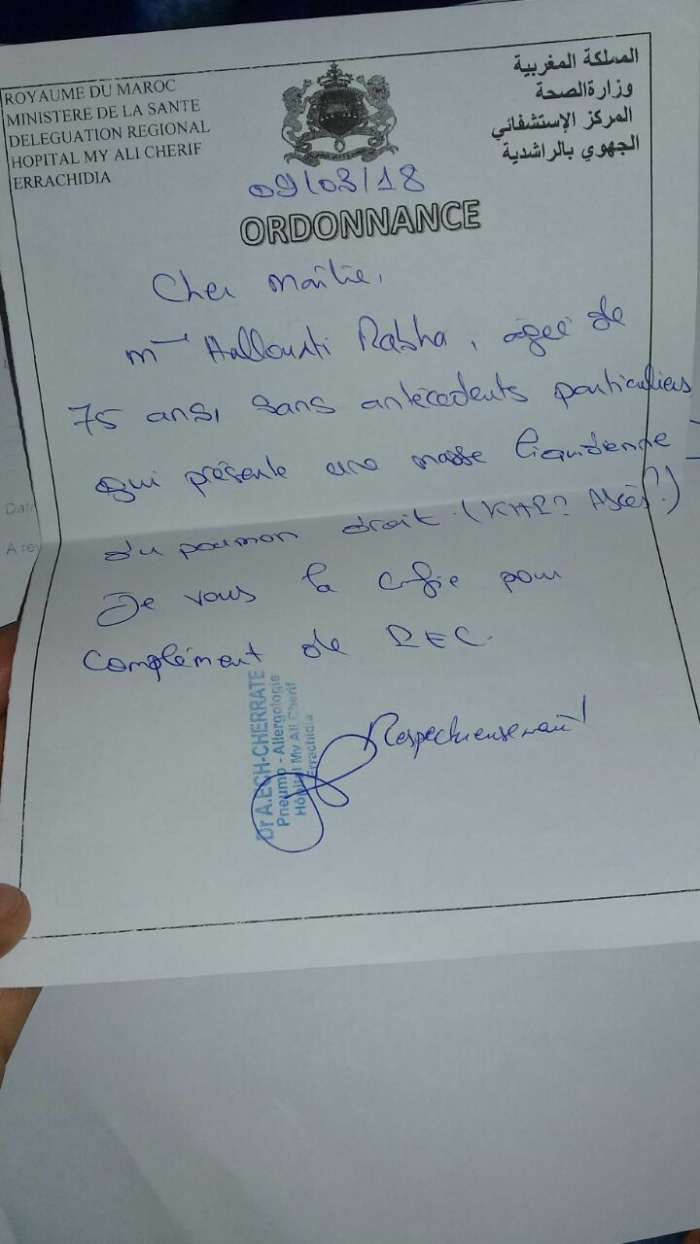 ROYAUME DU MAROC
MINISTERE DE LA SANTE
DELEGUATION REGIONAL
HOPITAL MY ALI CHERIF
ERRACHIDIA
المملكة المغربية
وزارة الصحة
المركز الإستشفائي
الجهوي بالراشدية
09/03/18
ORDONNANCE
Cher Maître,
Rabha, agée de
75 ans, sans antécédents particuliers
qui présente une masse liquidienne
du poumon droit. (KHP? Abcès?)
Je vous la confie pour
Complément de PEC.
Respectueusement
Dr A.ECH-CHERRATE
Pneumo - Allergologie
Hôpital My Ali Cherif
Errachidia